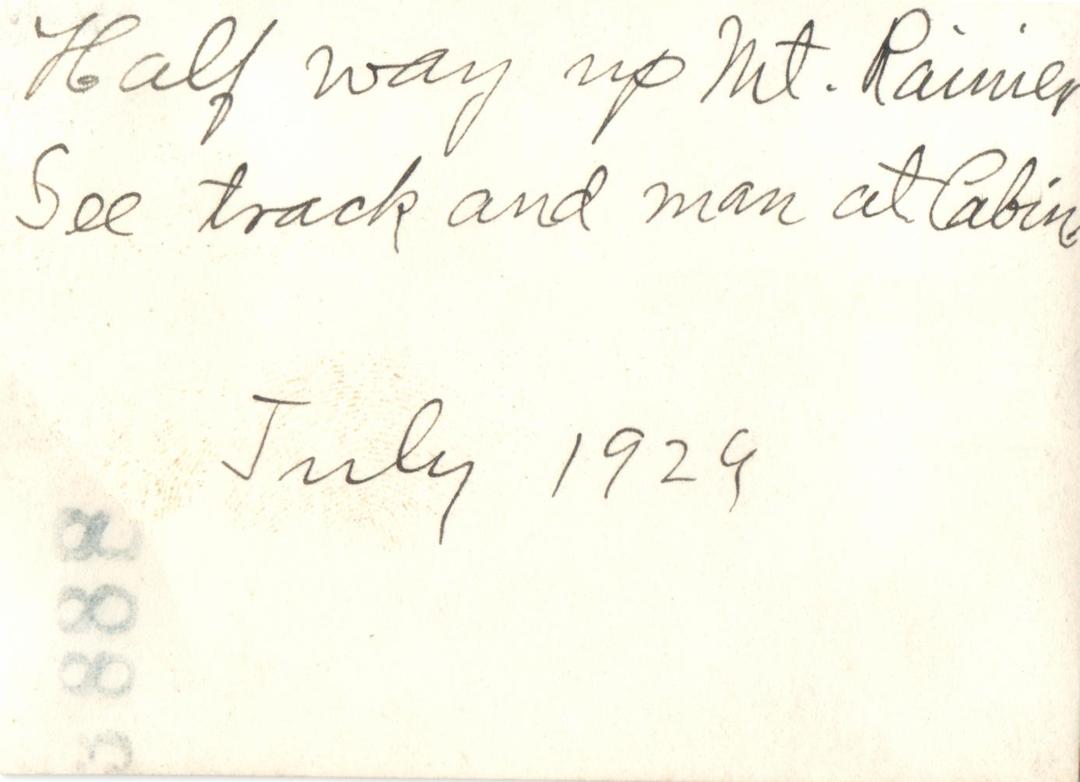 Half way up Mt. Rainier
See track and man at Cabin
July 1929